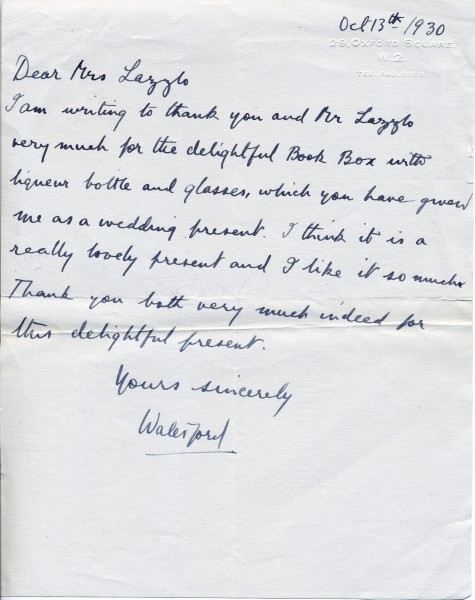 Oct 13th 1930
28, OXFORD SQUARE,
W.2.
Dear Mrs Lazzlo
I am writing to thank you and Mr Lazzlo
very much for the delightful Book Box with
liqueur bottle and glasses, which you have given
me as a wedding present. I think it is a
really lovely present and I like it so much.
Thank you both very much indeed for
this delightful present.
Yours sincerely